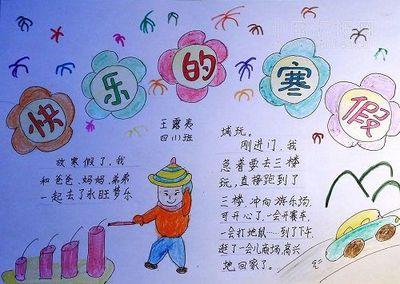 快乐的寒假
王露尧
四川班
放寒假了,我
和爸爸、妈妈、弟弟
一起去了永旺梦乐
城玩。
刚进门,我
急着要去三楼
玩,直接跑到了
三楼,冲向游乐场,
可开心了,一会开赛车,
一会打地鼠……到了下午,
逛了一会儿商场,高兴
地回家了。